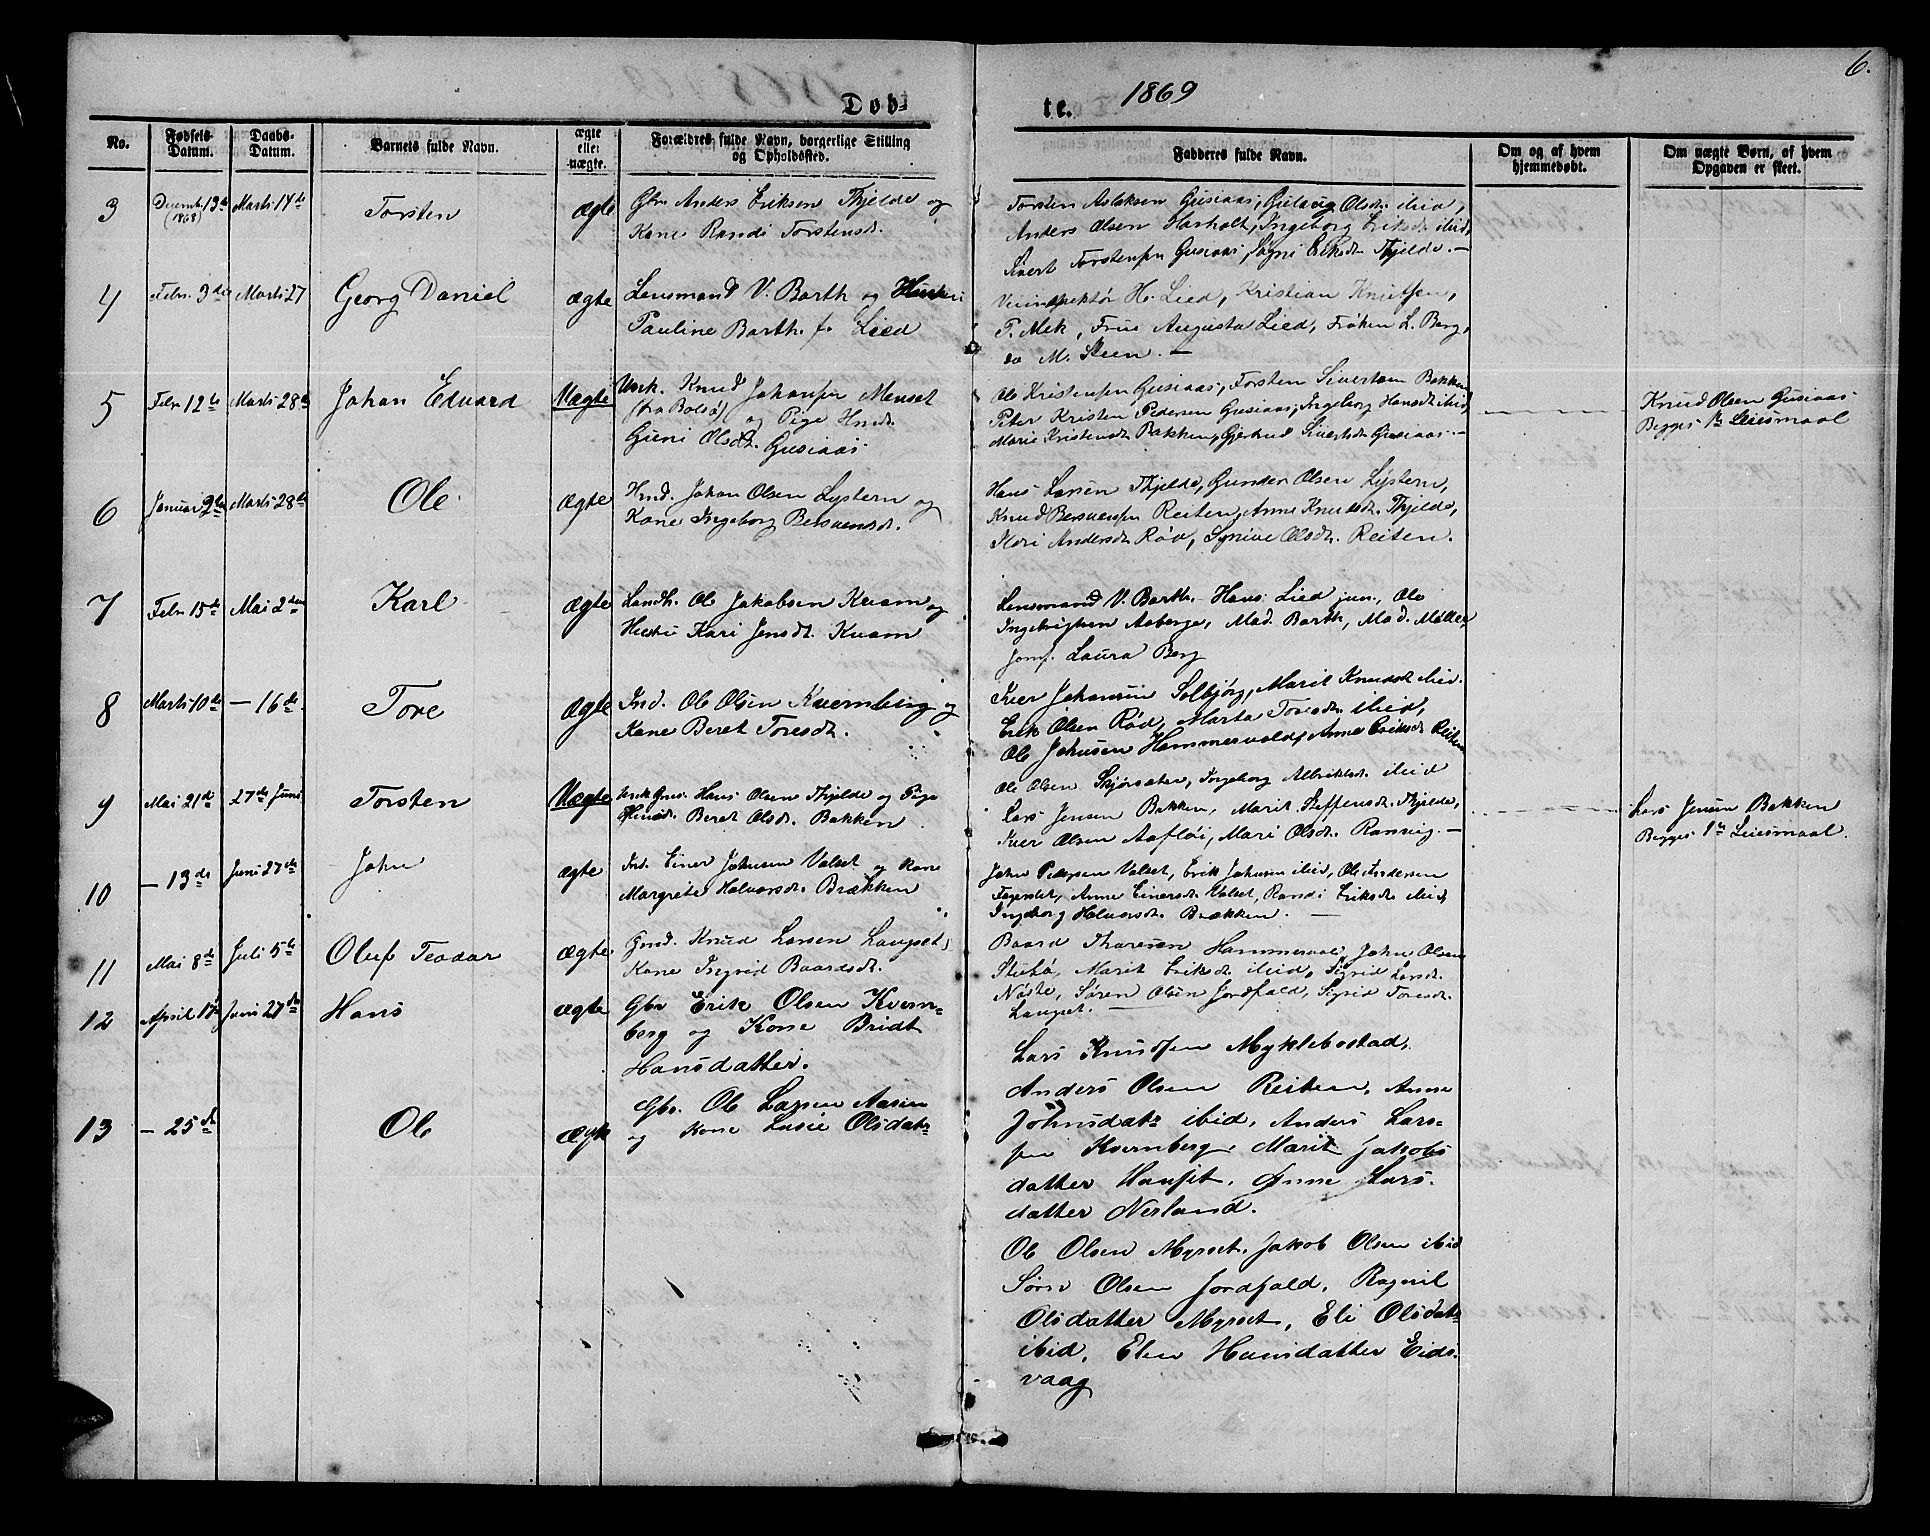 6.
Døb-
te.
1869
No.
Fødsels-Datum.
Daabs-Datum.
Barnets fulde Navn.
ægte eller uægte.
Forældres fulde Navn, borgerlige Stilling og Opholdssted.
Faddernes fulde Navn.
Om og af hvem hjemmedøbt.
Om uægte Børn, af hvem Opgaven er skeet.
3 Decemb. 13de (1868) Marts 14de Torsten ægte
Gbr. Anders Eriksen Thjelde og
Kone Randi Torstensdt.
Torsten Aslaksen Gusiaas, Gjelaug Olsdt. ibid,
Anders Olsen Harholt, Ingeborg Eriksdt. ibid,
Sivert Torstensen Gusiaas, Sigri Eriksdt. Thjelde. —
4 Febr. 3die Marts 27 Georg Daniel ægte
Lensmand V. Barth og Hustru
Pauline Barth f. Lied
Veiinspektør H. Lied, Kristian Knutsen,
P. Mek, Frue Augusta Lied, Frøken L. Berg,
do M. Steen. —
5 Febr. 12te Marts 28de Johan Edvard Uægte
Unk. Knud Johansen Mensat
(fra Bolsø) og Pige Hmdt.
Guni Olsdt. Gusiaas
Ole Kristensen Gusiaas, Torsten Sivertsen Bakken,
Peter Kristen Pedersen Gusiaas, Ingeborg Hansdt. ibid,
Marie Kristensdt. Bakken, Gjertrud Sivertsdt. Gusiaas. —
Knud Olsen Gusiaas
Begges 1te Leiermaal
6 Januar 2den Marts 28de Ole ægte
Hmd. Johan Olsen Lystern og
Kone Ingeborg Bersvensdt.
Hans Larsen Thjelde, Gunder Olsen Lystern,
Knud Bersvensen Reiten, Anne Knudsdt. Thjelde,
Kari Andersdt. Rød, Synive Olsdt. Reiten.
7 Febr 15de Mai 2den Karl ægte
Landh. Ole Jakobsen Kvam og
Hustru Kari Jensdt. Kvam
Lensmand V. Barth. Hans Lied jun., Ole
Ingebrigtsen Aaberge, Mad. Barth, Mad. Møller,
Jomf. Laura Berg
8 Marts 10de — 16de Tore ægte
Ind. Ole Olsen Kvernberg og
Kone Beret Toresdt.
Iver Johansen Solbjørg, Marit Knudsdt. ibid.
Erik Olsen Rød, Marta Toresdt. ibid,
Ole Johnsen Hammervold, Anne Eriksdt. Reiten
9 Mai 21de 27de Juni Torsten Uægte
Unk. Hans Olsen Thjelde og Pige
Beret Olsdt. Bakken
Ole Olsen Skjørsæter, Ingeborg Albriktsdt. ibid
Lars Jensen Bakken, Marit Steffensdt. Thjelde,
Iver Olsen Aafløi, Mari Olsdt. Ranvig. —
Lars Jensen Bakken
Begges 1te Leiermaal.
10 — 13de Juni 27de John ægte
Ind. Einer Johnsen Valset og Kone
Margrete Halvorsdt. Brækken
John Pedersen Valset, Erik Johnsen ibid, Ole Andersen
Fagerslet, Anne Einersdt. Valset, Randi Eriksdt. ibid,
Ingeborg Halvorsdt. Brækken. —
11 Mai 8de Juli 5te Oluf Teodor ægte
Gmd. Knud Larsen Langset,
Kone Ingrid Baardsdt.
Baard Thoresen Hammervold, John Olsen
Stubø, Marit Eriksdt. ibid, Sigrid Larsdt.
Nøste, Søren Olsen Jordfald, Sigrid Toresdt.
Langset. —
12 April 17de Juni 27de Hans ægte
Gbr Erik Olsen Kvern-
berg og Kone Bridt
Hansdatter.
Lars Knudsen Myklebostad,
Anders Olsen Reiten, Anne
Johnsdatr ibid, Anders Lars-
sen Kvernberg, Marit Jakobs
datter Hausset, Anne Lars-
datter Nerland.
13 — 25de Ole ægte
Gbr. Ole Larsen Aasen
og Kone Lusie Olsdatr
Ole Olsen Myrset, Jakob Olsen ibid
Søren Olsen Jordfald, Ragnil
Olsdatter Myrset, Eli Olsdatr
ibid, Elen Hansdatter Eids-
vaag